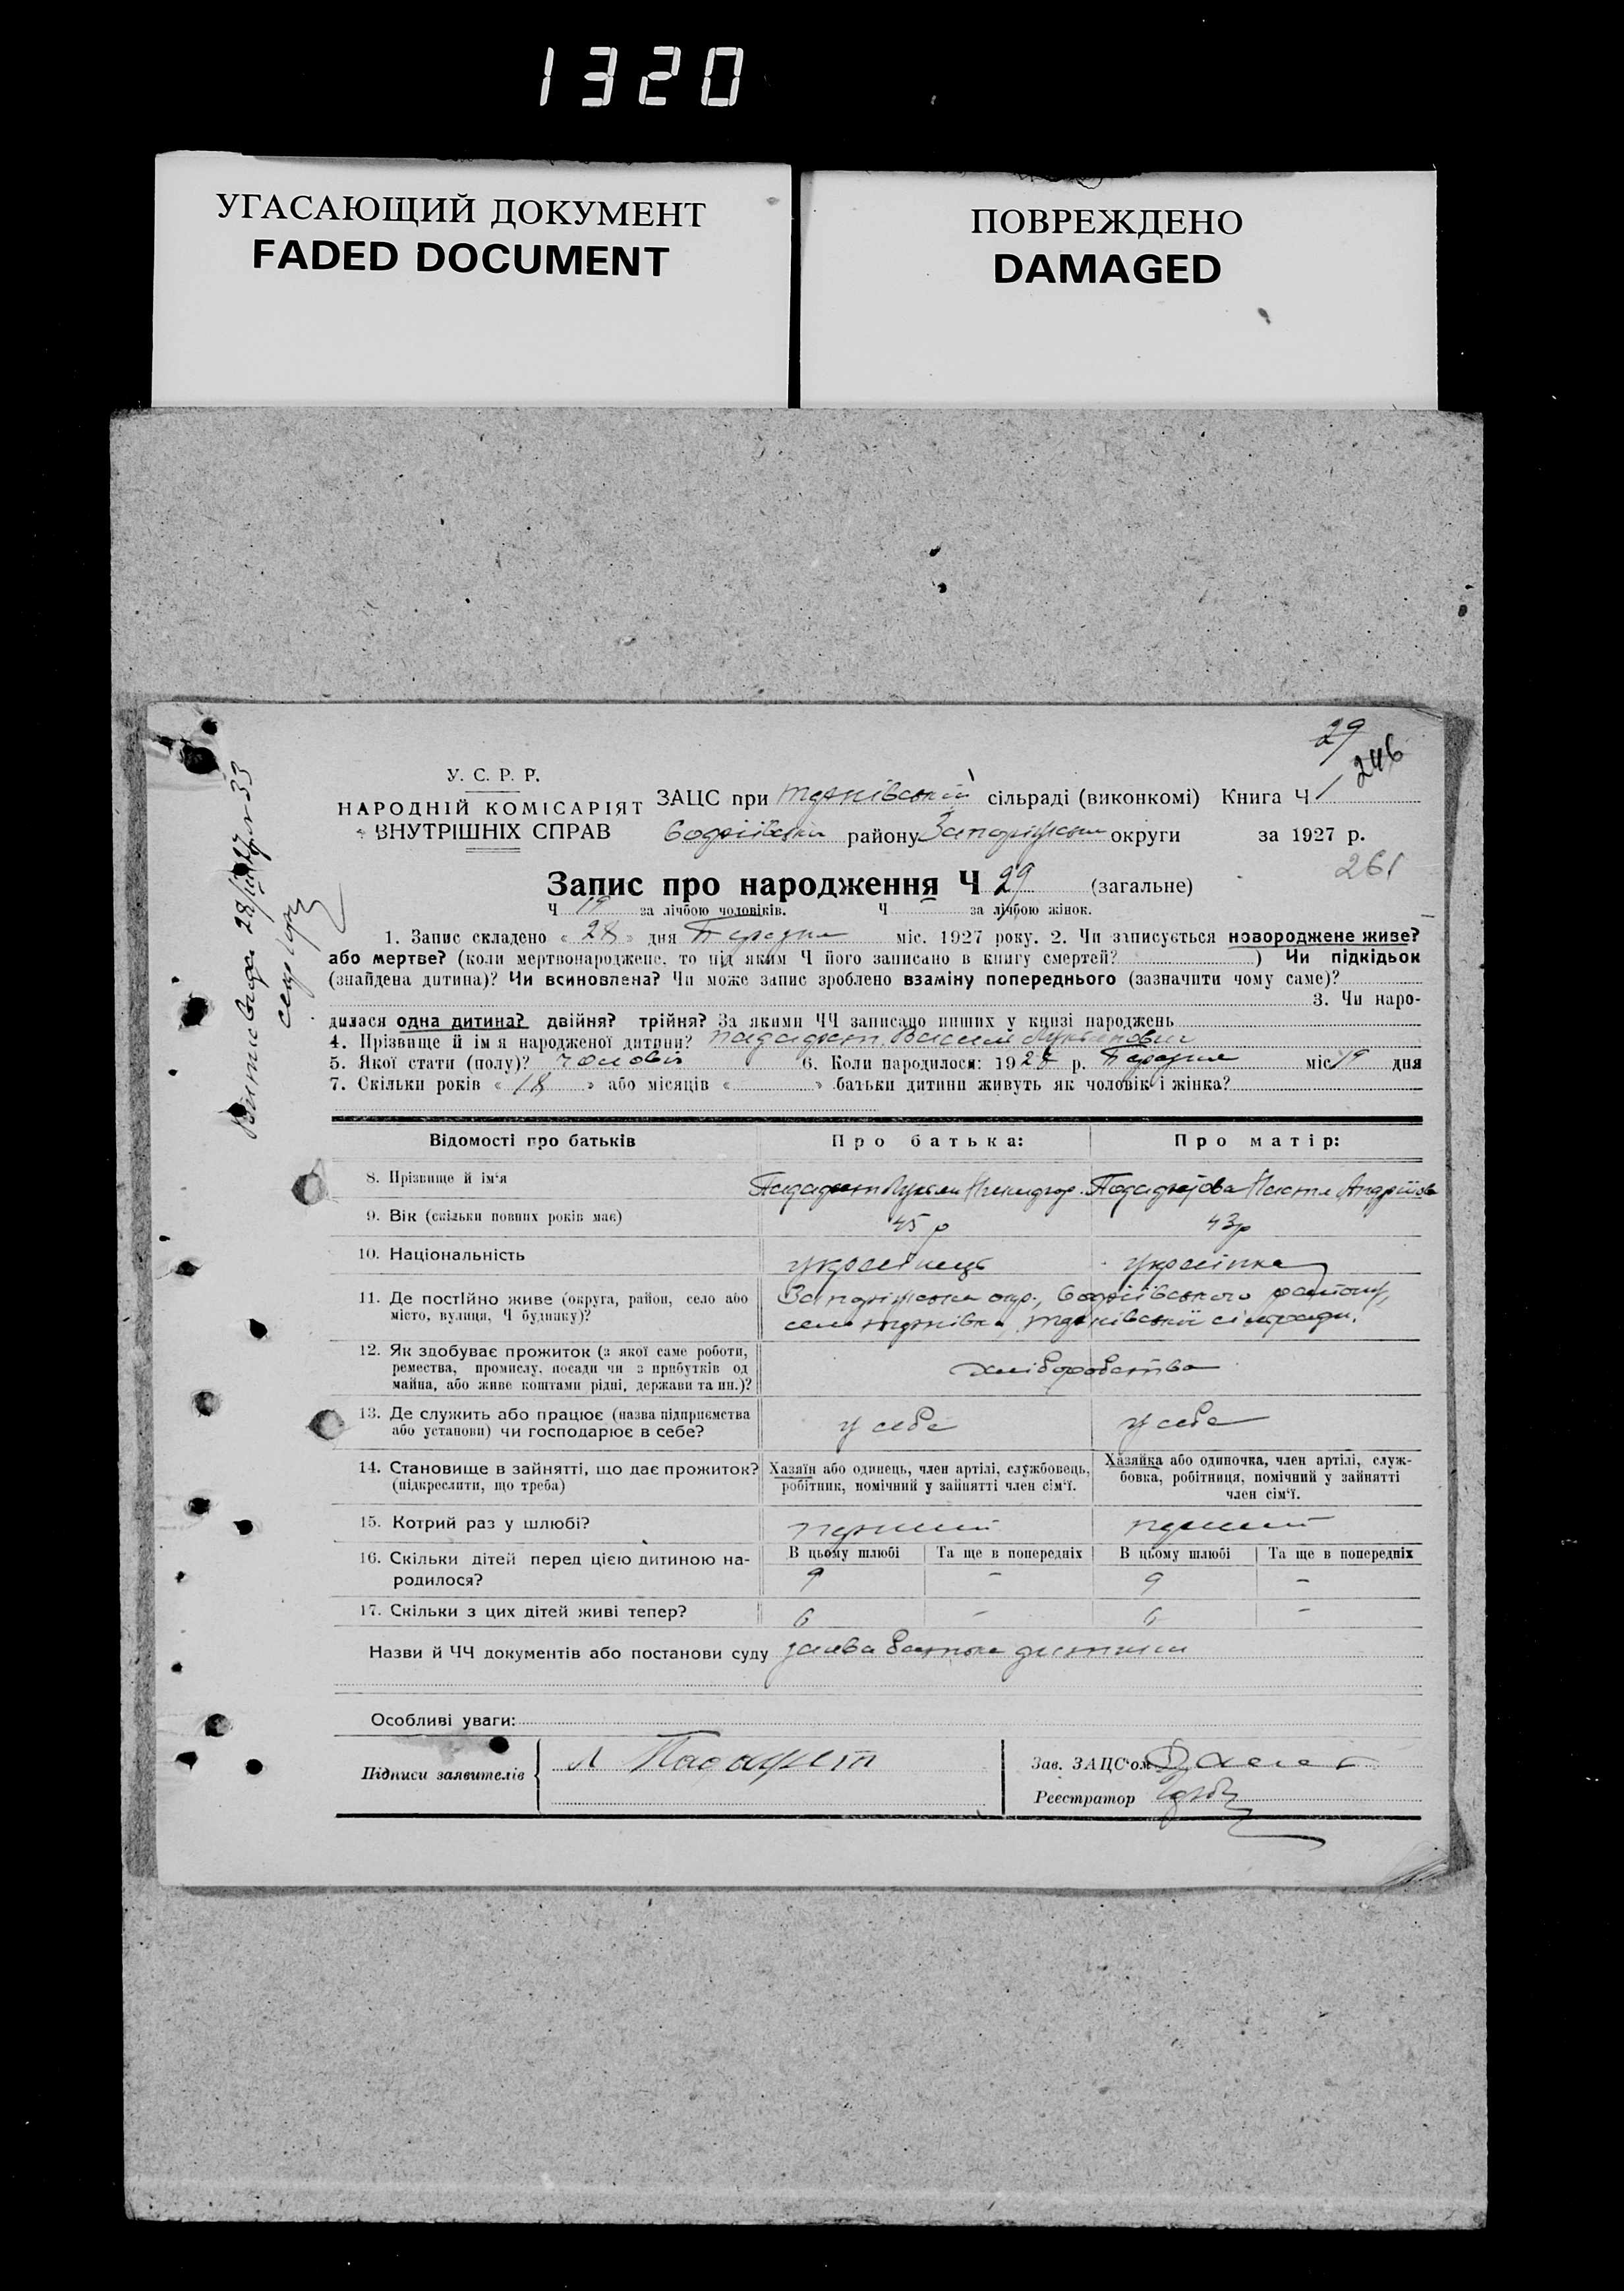 1320
УГАСАЮЩИЙ ДОКУМЕНТ
FADED DOCUMENT
ПОВРЕЖДЕНО
DAMAGED
29
246
У. С. Р. Р.
НАРОДНІЙ КОМІСАРІЯТ
ВНУТРІШНІХ СПРАВ
ЗАЦС при сільраді (виконкомі) Книга Ч 1
району округи за 1927 р.
261
Запис про народження Ч 29 (загальне)
Ч 19 за лічбою чоловіків. Ч за лічбою жінок.
1. Запис складено « 28 » дня міс. 1927 року. 2. Чи записується новороджене живе?
або мертве? (коли мертвонароджене, то під яким Ч його записано в книгу смертей? ) Чи підкідьок
(знайдена дитина)? Чи всиновлена? Чи може запис зроблено взаміну попереднього (зазначити чому саме)?
3. Чи наро-
дилася одна дитина? двійня? трійня? За якими ЧЧ записано инших у книзі народжень
4. Прізвище й ім'я народженої дитини? Василь
5. Якої стати (полу)? 6. Коли народилося: 19 р. міс. 19 дня
7. Скільки років « 18 » або місяців « » батьки дитини живуть як чоловік і жінка?
Відомості про батьків Про батька: Про матір:
8. Прізвище й ім'я
9. Вік (скільки повних років має) 45 р 43 р
10. Національність українець українка
11. Де постійно живе (округа, район, село або
місто, вулиця, Ч будинку)?
12. Як здобуває прожиток (з якої саме роботи,
ремества, промислу, посади чи з прибутків од
майна, або живе коштами рідні, держави та ин.)?
хліборобство
13. Де служить або працює (назва підприємства
або установи) чи господарює в себе?
у себе у себе
14. Становище в зайнятті, що дає прожиток?
(підкреслити, що треба)
Хазяїн або одинець, член артілі, службовець,
робітник, помічний у зайнятті член сім'ї.
Хазяйка або одиночка, член артілі, служ-
бовка, робітниця, помічний у зайнятті
член сім'ї.
15. Котрий раз у шлюбі?
16. Скільки дітей перед цією дитиною на-
родилося?
В цьому шлюбі Та ще в попередніх В цьому шлюбі Та ще в попередніх
9 - 9 -
17. Скільки з цих дітей живі тепер? 6 - 6 -
Назви й ЧЧ документів або постанови суду заява батька дитини
Особливі уваги:
Підписи заявителів
Зав. ЗАЦС'ом
Реєстратор